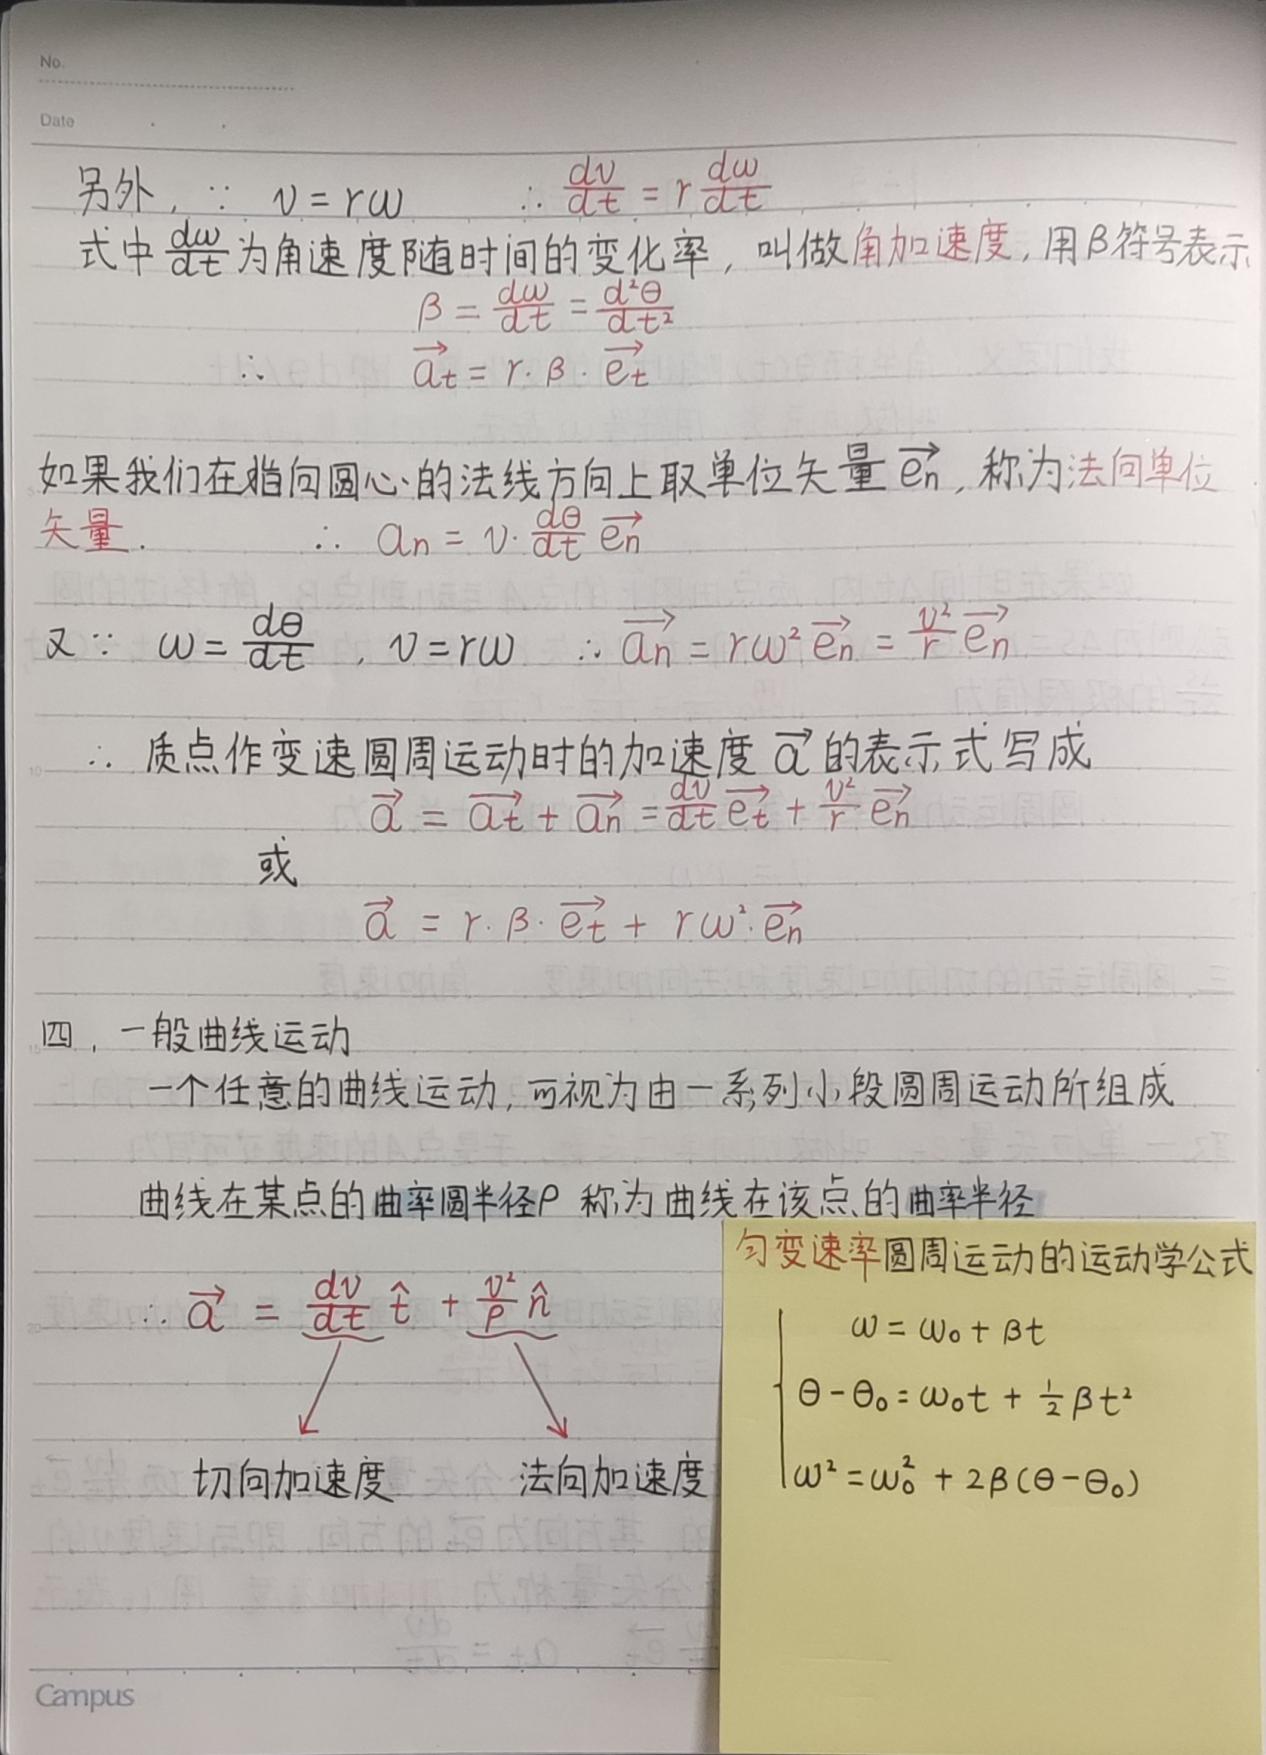 No.
Date
另外, ∵ v = rω ∴ dv/dt = r dω/dt
式中 dω/dt 为角速度随时间的变化率, 叫做角加速度, 用β符号表示
β = dω/dt = d²θ/dt²
∴ a⃗t = r · β · e⃗t
如果我们在指向圆心的法线方向上取单位矢量 e⃗n, 称为法向单位
矢量. ∴ an = v · dθ/dt e⃗n
又∵ ω = dθ/dt , v = rω ∴ a⃗n = rω² e⃗n = v²/r e⃗n
∴ 质点作变速圆周运动时的加速度 a⃗ 的表示式写成
a⃗ = a⃗t + a⃗n = dv/dt e⃗t + v²/r e⃗n
或
a⃗ = r · β · e⃗t + rω² · e⃗n
四, 一般曲线运动
一个任意的曲线运动, 可视为由一系列小段圆周运动所组成
曲线在某点的曲率圆半径ρ 称为曲线在该点的曲率半径
∴ a⃗ = dv/dt t̂ + v²/ρ n̂
切向加速度 法向加速度
匀变速率圆周运动的运动学公式
ω = ω₀ + βt
θ - θ₀ = ω₀t + ½βt²
ω² = ω₀² + 2β(θ - θ₀)
Campus